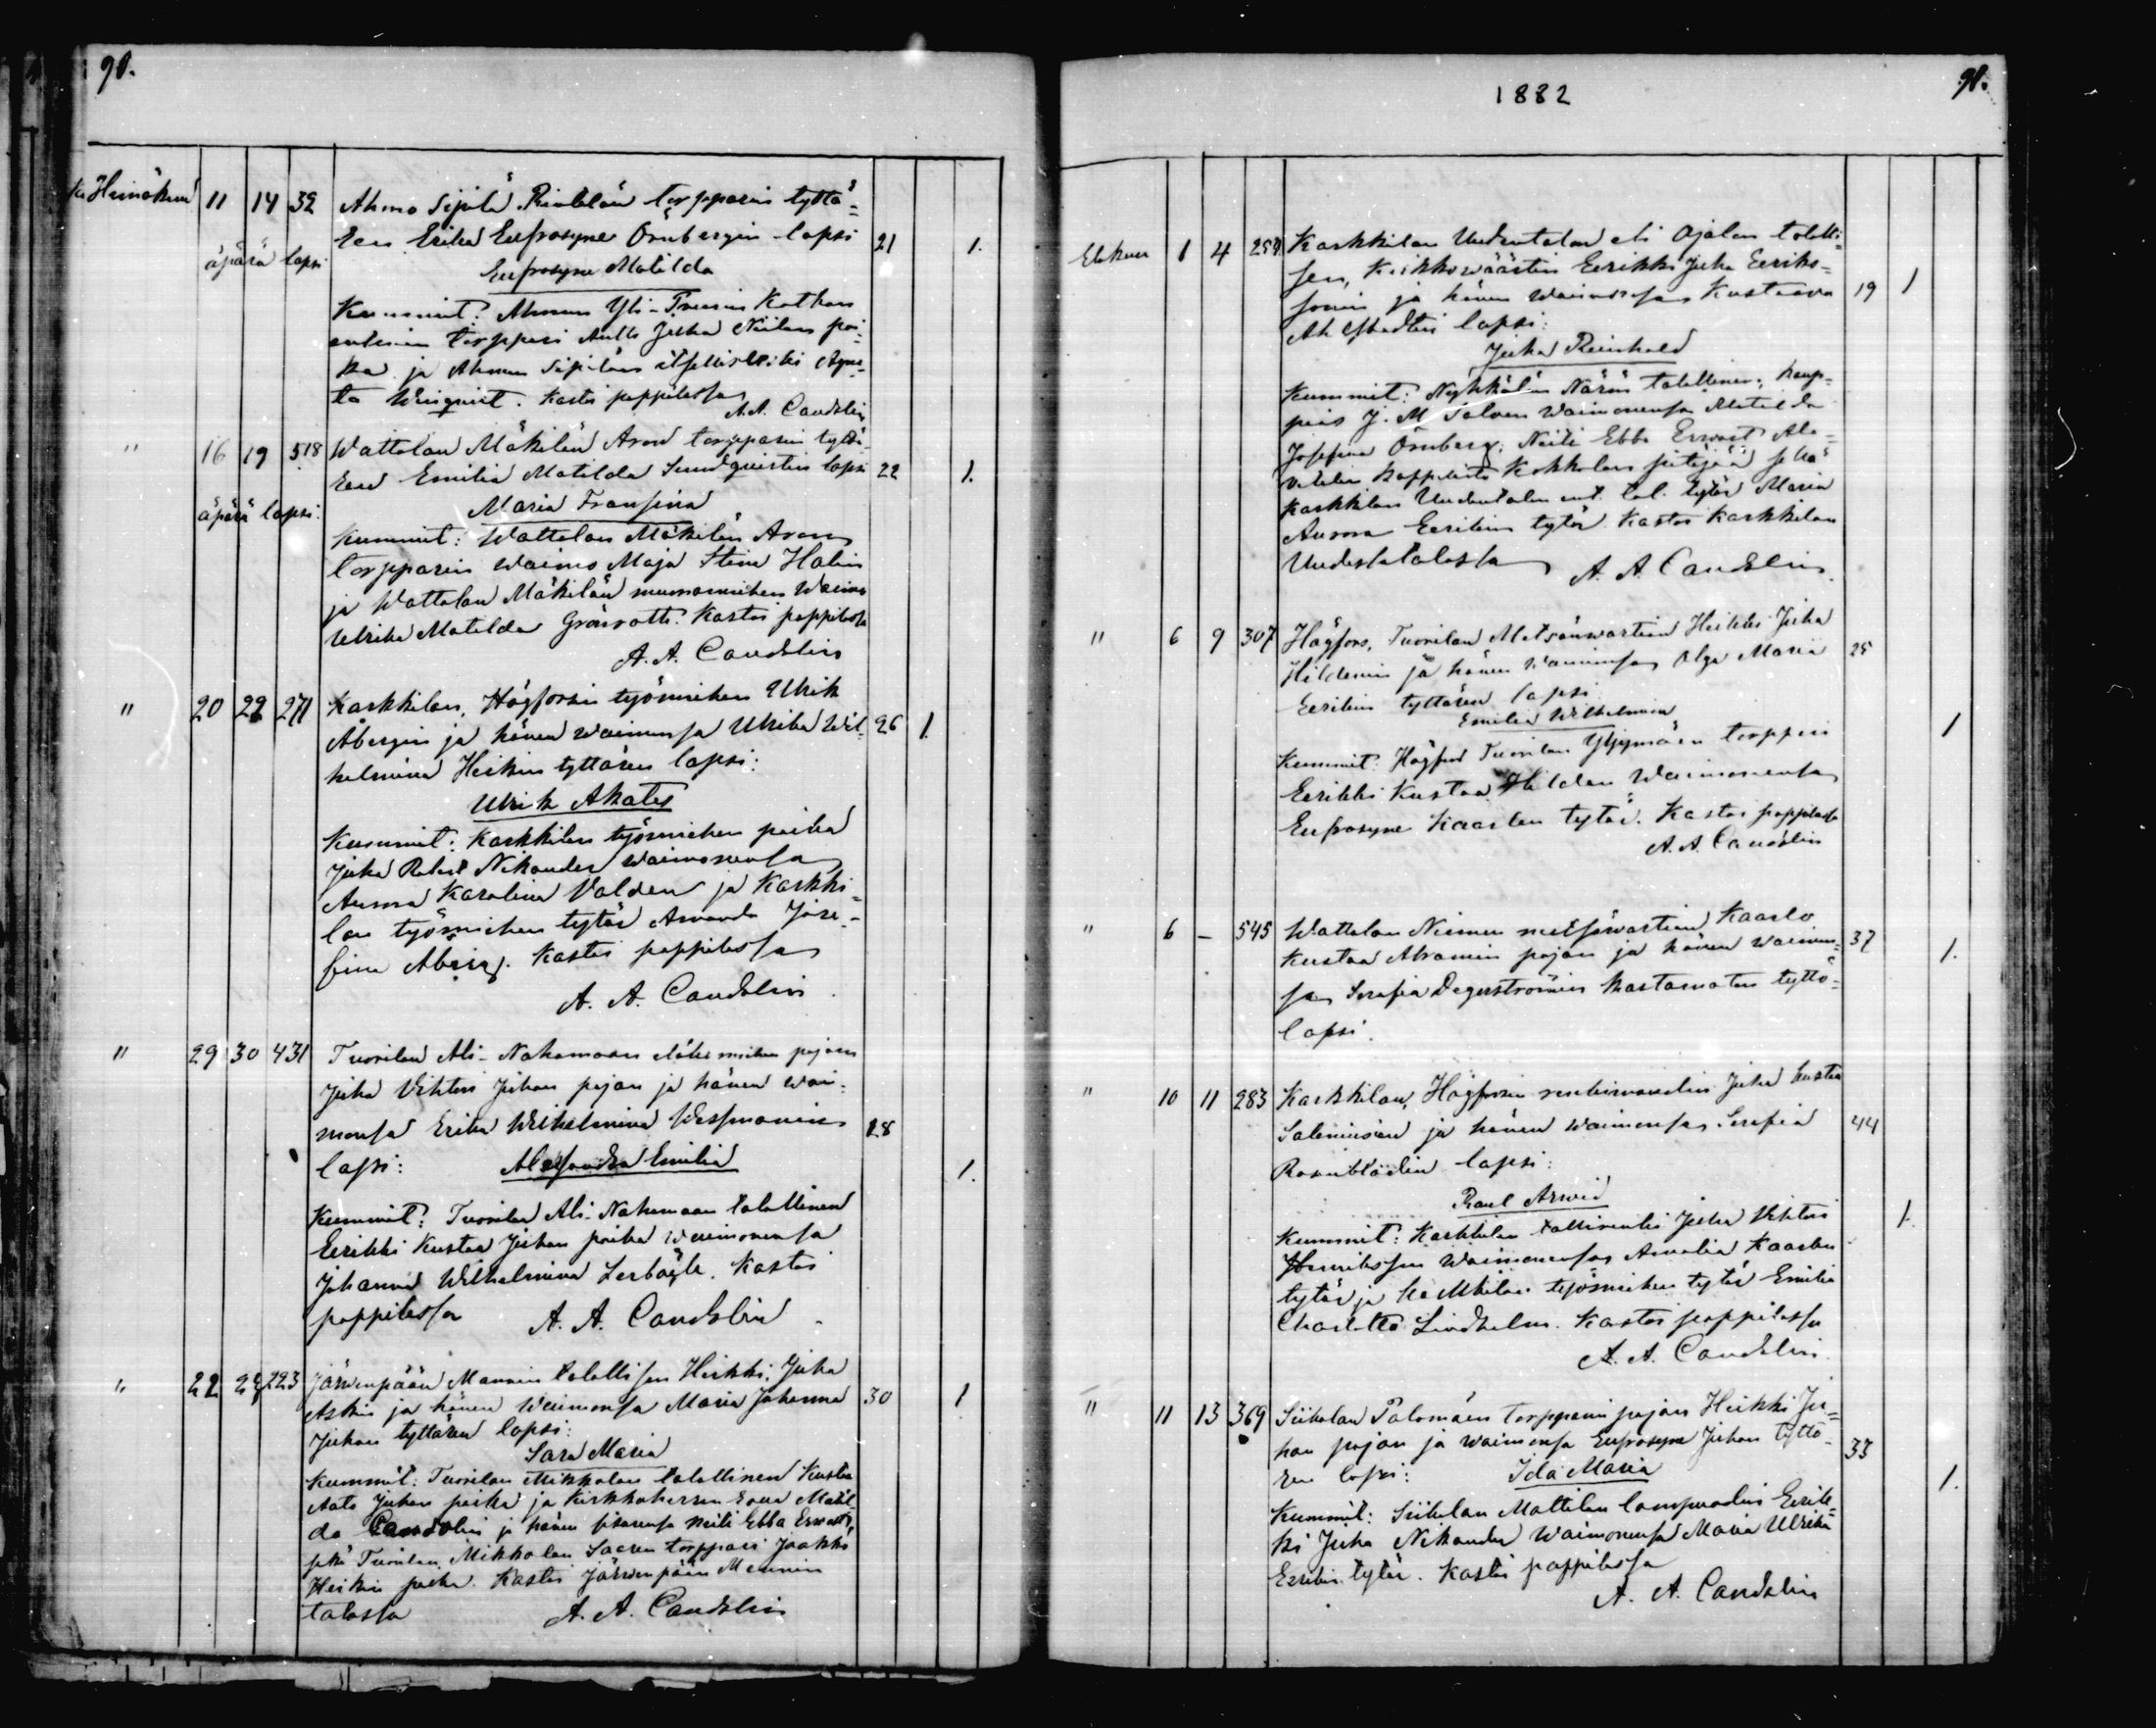 90.
Heinäkuu 11 14 32 Ahmo Sipilä torpparin tyttä=
ren Erika Eufrosyne Örnbergin lapsi 21 1.
äpärä lapsi
Eufrosyne Matilda
Kummit: Ahmon Yli-
torppari Antti Juha poi-
ka ja Ahmon Sipilän Agne-
ta Winqvist. Kasti pappilassa
A. A. Candelin
" 16 19 518 Wattolan Mäkilän Aron torpparin tyttä-
ren Emilia Matilda Sundqvistin lapsi 22 1.
äpärä lapsi:
Maria Fransina
Kummit: Wattolan Mäkilän Aron
torpparin waimo Maja Stina Holin
ja Wattolan Mäkilän waimo
Ulrika Matilda Grönroth. Kastoi pappilassa
A. A. Candelin
" 20 22 271 Karkkilan, Högforsin työmiehen Ulrik
Åbergin ja hänen waimonsa Ulrika Wil- 26 1.
helmina Heikin tyttären lapsi:
Ulrik Akates
Kummit: Karkkilan työmiehen poika
Juha Robert Nikander waimonensa
Aurora Karolina Valden ja Karkki=
lan työmiehen tytär Amanda Jose-
fina Åberg. Kastoi pappilassa
A. A. Candelin.
" 29 30 431 Tuorilan Ali-Nahamaan pojan
Juha Vihtori Juhan pojan ja hänen wai-
monsa Erika Wilhelmina Wessmanin 28
lapsi: Alexandra Emilia 1.
Kummit: Tuorilan Ali-Nahamaan talollinen
Eerikki Kustaa Juhan poika waimonensa
Johanna Wilhelmina. Kastoi
pappilassa A. A. Candelin
" 22 24 223 Järwenpään Mannin talollisen Heikki Juha
Askin ja hänen waimonsa Maria Johanna 30 1
Juhan tyttären lapsi:
Sara Maria
Kummit: Tuorilan Mikkolan talollinen Kustaa
Juhan poika ja Kirkkoherran Matil-
da Candolin ja hänen sisarensa neiti Ebba Erwast,
sekä Tuorilan Mikkolan torppari Jaakko
Heikin poika. Kastoi Järwenpään Mannin
talossa A. A. Candelin
1882
91.
Elokuu 1 4 257 Karkkilan Uudentalon eli Ojalan talolli=
sen, Eerikki Juha Eeriks-
sonin ja hänen waimonsa Kustaawa 19 1
Ahlstedtin lapsi:
Juha Reinhold
Kummit: Nyhkälän talollinen, kaup-
pias J. M Salven waimonensa Matilda
Josefina Örnberg; Neiti Ebba Erwast
Kokkolan pitäjää sekä
Karkkilan Uudentalon tal. tytär Maria
Aurora Eerikin tytär. Kastoi Karkkilan
Uudessatalossa A. A. Candelin.
" 6 9 307 Högfors, Tuorilan Metsänwartian Heikki Juha
Hildenin ja hänen waimonsa Olga Maria 25
Eerikin tyttären lapsi
Emilia Wilhelmina 1
Kummit: Högfors Tuorilan torppari
Eerikki Kustaa Hilden waimonensa
Eufrosyne Kaarlen tytär. Kastoi pappilassa
A. A. Candelin
" 6 - 545 Wattolan Niemen metsänwartian Kaarlo
Kustaa Abramin pojan ja hänen waimon= 37 1.
sa Serafia Degerströmin kastamaton tyttö-
lapsi.
" 10 11 283 Karkkilan, Högforsin Juha Kustaa
Saleniusen ja hänen waimonsa Serafia 44
Rosenbladin lapsi:
Paul Arwid 1.
Kummit: Karkkilan tallirenki Juha Vihtori
Henriksson waimonensa Amalia Kaarlen
tytär ja työmiehen tytär Emilia
Charlotta Lindholm. Kastoi pappilassa
A. A. Candelin.
" 11 13 369 Siikalan Palomäen torpparin pojan Heikki Ju=
han pojan ja waimonsa Eufrosyne Juhan tyttä- 33
ren lapsi: Ida Maria 1.
Kummit: Siikalan Mattilan lampuodin Eerik-
ki Juha Nikander waimonensa Maria Ulrika
Eerikin tytär. Kastoi pappilassa
A. A. Candelin